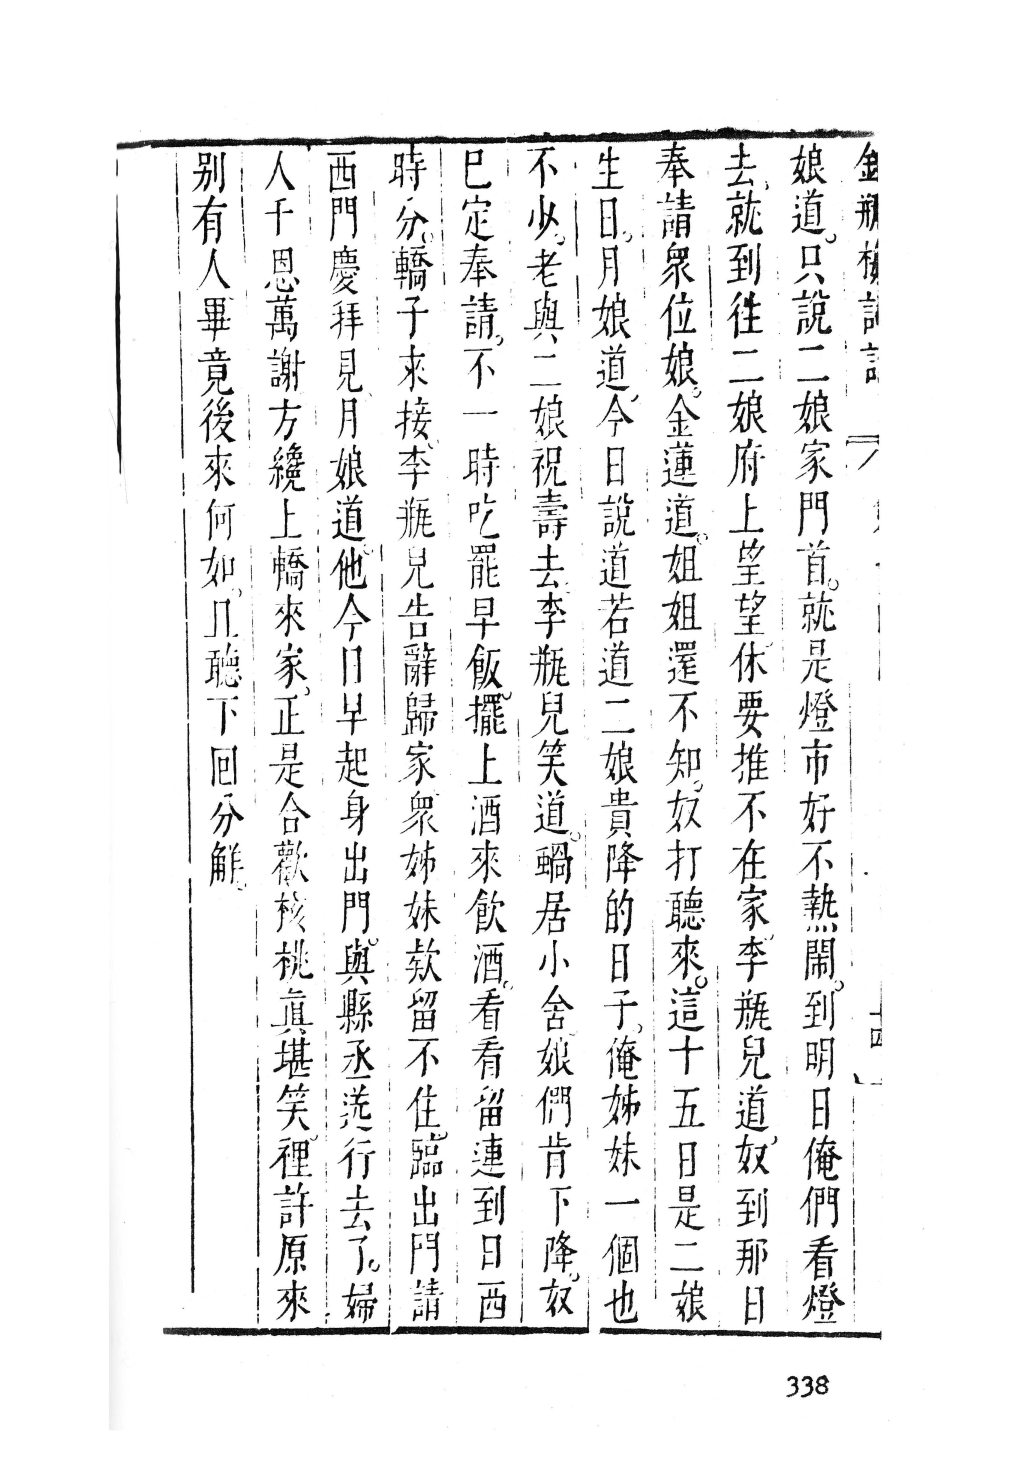 金瓶梅詞話 十四
娘道。只說二娘家門首。就是燈市好不熱鬧。到明日俺們看燈
去、就到徃二娘府上望望、休要推不在家、李瓶兒道、奴到那日
奉請衆位娘。金蓮道。姐姐還不知。奴打聽來。這十五日是二娘
生日。月娘道、今日說道若道二娘貴降的日子、俺姊妹一個也
不少。老與二娘祝壽去、李瓶兒笑道。蝸居小舍、娘們肯下降。奴
巳定奉請、不一時吃罷早飯、擺上酒來飲酒。看看留連到日西
時分。轎子來接、李瓶兒告辭歸家、衆姊妹欵留不住、臨出門請
西門慶拜見、月娘道、他今日早起身出門、與縣丞送行去了。婦
人千恩萬謝方纔上轎來家、正是合歡核桃眞堪笑、裡許原來
別有人畢竟後來何如、且聽下回分觧。
338